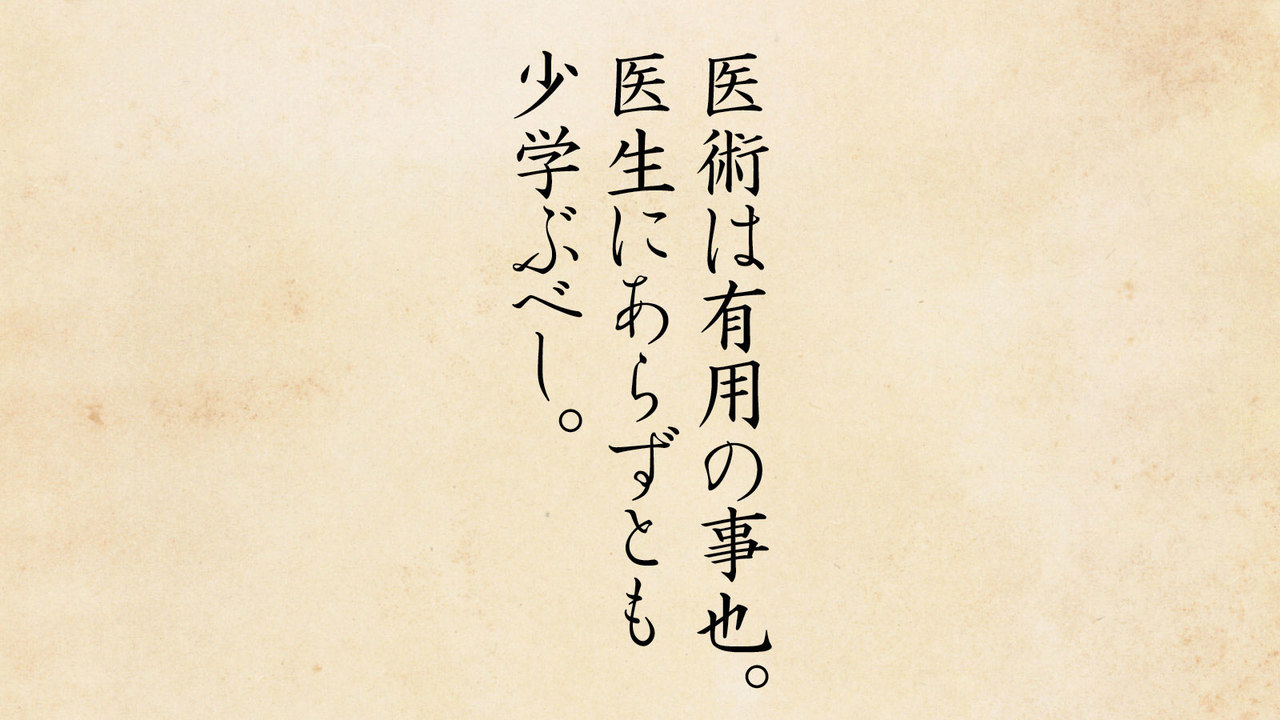 医術は有用の事也。
医生にあらずとも
少学ぶべし。